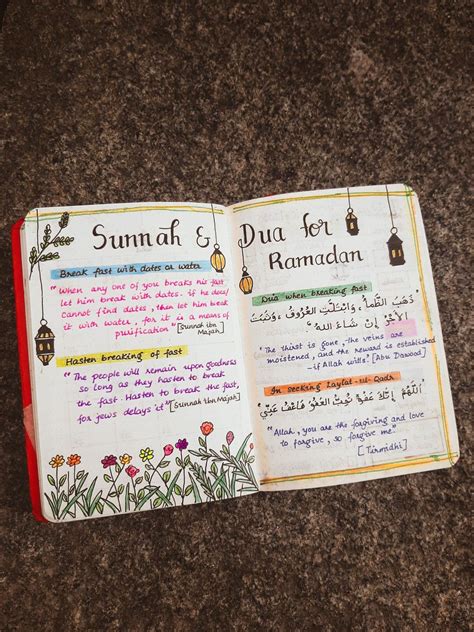 Sunnah &
Break fast with dates or water
"When any one of you breaks his fast
let him break with dates. if he does/
cannot find dates, then let him break
it with water, for it is a means of
purification" [Sunnah ibn
Majah]
Hasten breaking of fast
"The people will remain upon goodness
so long as they hasten to break
the fast. Hasten to break the fast,
for jews delays it" [Sunnah ibn Majah]
Dua for
Ramadan
Dua when breaking fast
ذَهَبَ الظَّمَأُ، وَابْتَلَّتِ الْعُرُوقُ وَثَبَتَ
الأَجْرُ إِنْ شَاءَ اللهُ
"The thirst is gone, the veins are
moistened, and the reward is established
if Allah wills" [Abu Dawood]
In seeking Laylat-ul-Qadr
اللَّهُمَّ إِنَّكَ عَفُوٌّ تُحِبُّ الْعَفْوَ فَاعْفُ عَنِّي
"Allah, you are the forgiving and love
to forgive, so forgive me"
[Tirmidhi]